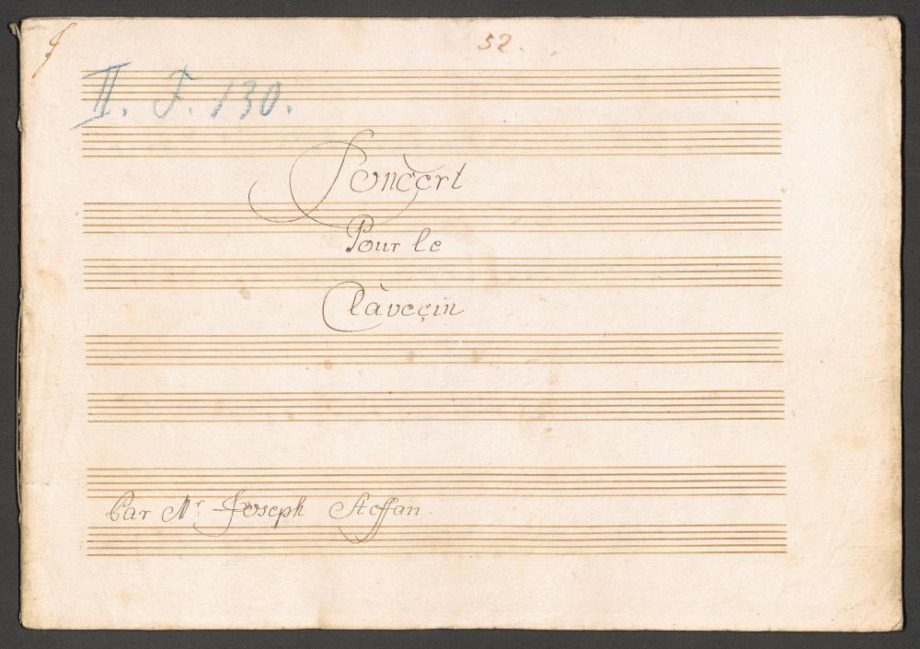 52.
II. F. 130.
Concèrt
Pour le
Clàveçin
Par Mr. Joseph Steffan